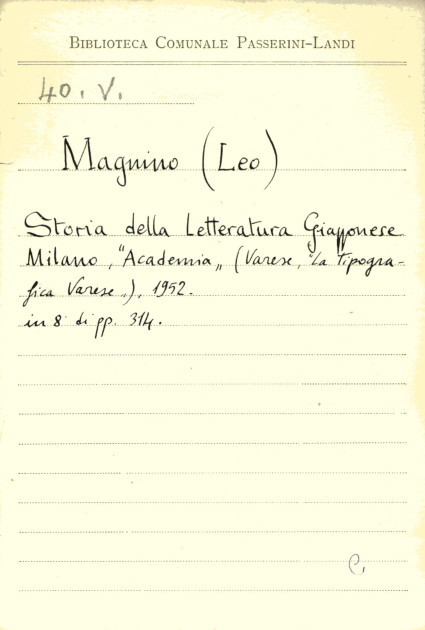 BIBLIOTECA COMUNALE PASSERINI-LANDI
40. V.
Magnino (Leo)
Storia della Letteratura Giapponese
Milano, "Academia„ (Varese, "La Tipogra-
fica Varese„), 1952.
in 8° di pp. 314.